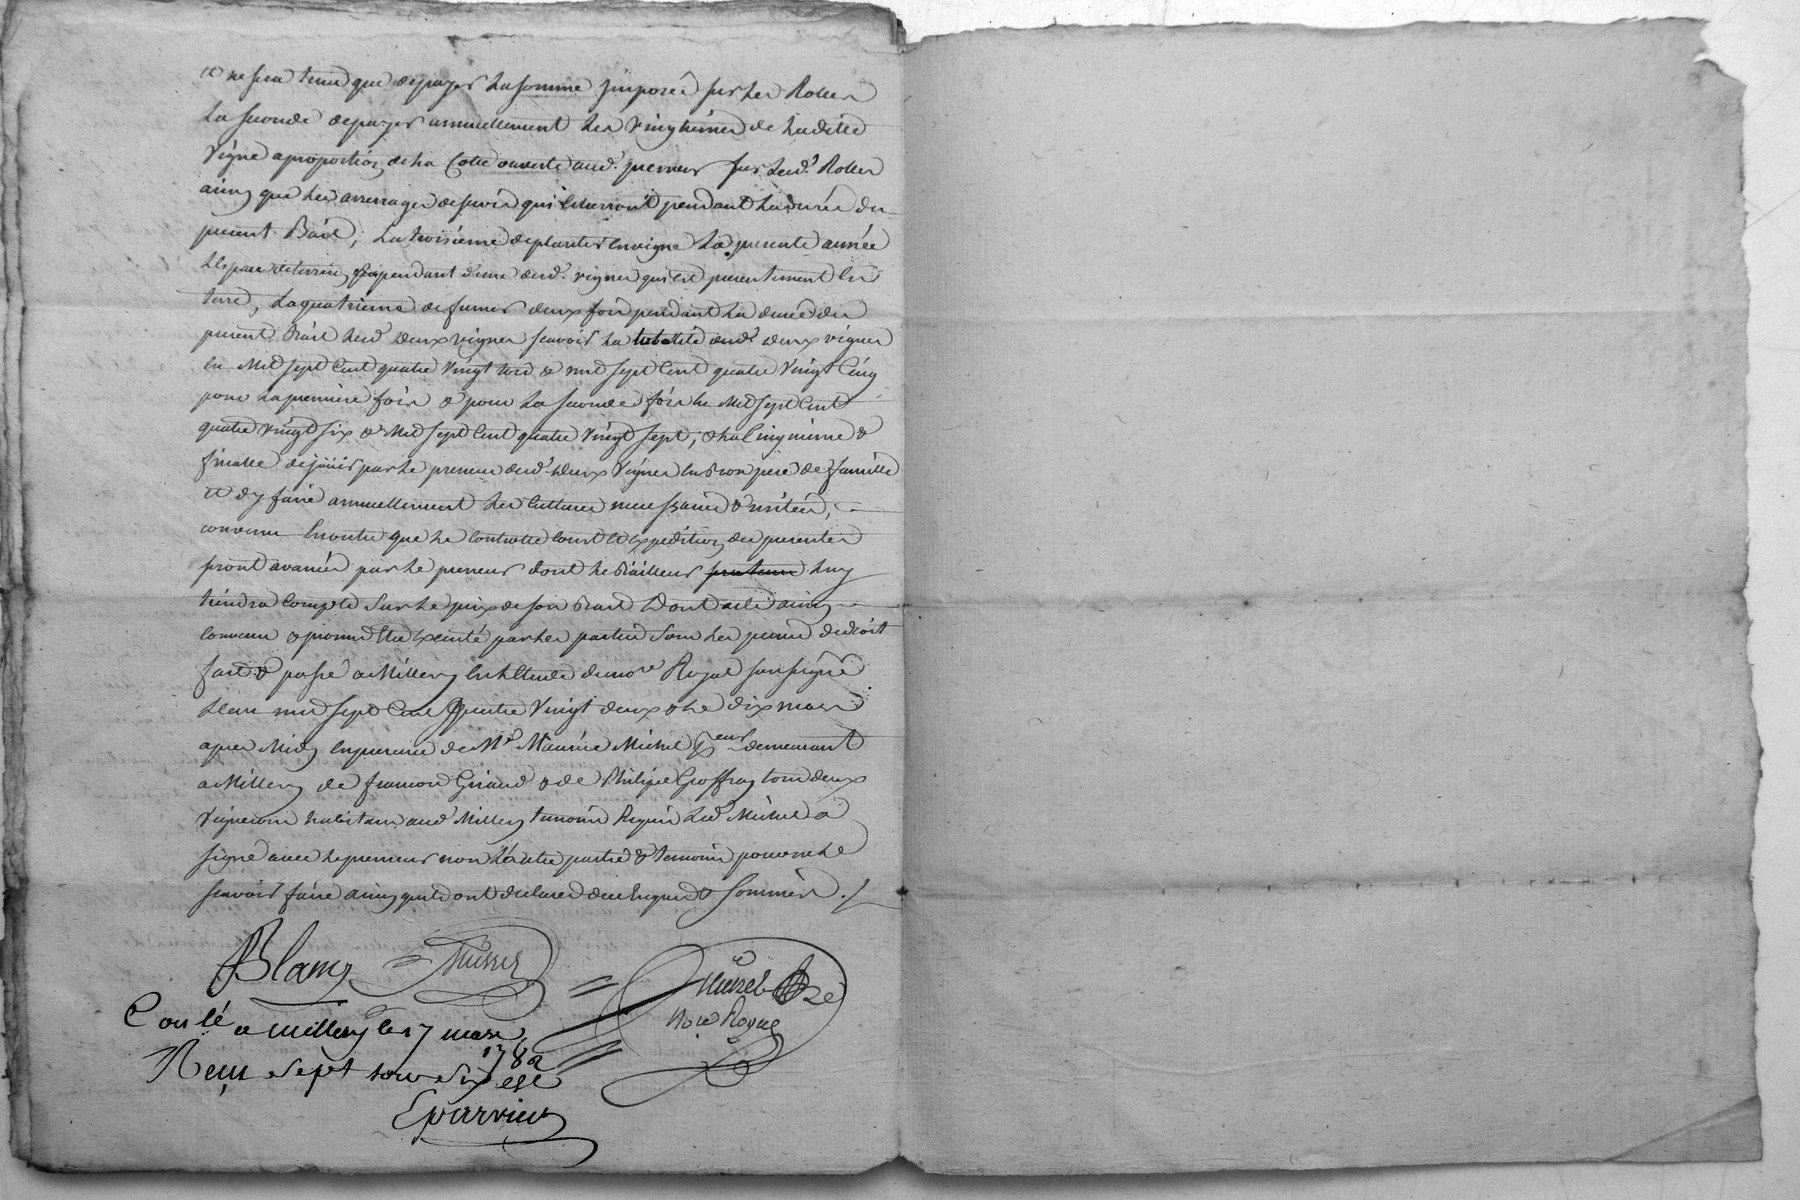 et ne sera tenu que de payer la somme imposée sur les Rolles
la seconde de payer annuellement les vingtièmes de laditte
vigne a proportion de la Cotte ouverte aud. preneur sur lesd. Rolles
ainsy que les arrerages de servis qui écherront pendant la durée du
present Bail, la troisieme de planter en vigne la presente année
l'espace de terrein dependant d'une desd. vignes qui est presentement en
terre, la quatrieme de fumer deux fois pendant la durée du
present Bail lesd. deux vignes scavoir la totalité desd. deux vignes
en Mil sept Cent quatre Vingt trois & mil sept Cent quatre Vingt Cinq
pour la premiere fois & pour la seconde fois en Mil sept Cent
quatre Vingt six & Mil sept Cent quatre Vingt sept, & la Cinquieme &
finalle de jouir par le preneur desd. deux Vignes en Bon pere de famille
et d'y faire annuellement les Cultures necessaires & usitées,
convenu en outre que le controlle et expedition des presentes
seront avancés par le preneur dont le Bailleur luy
tiendra Compte sur le prix de son Bail Dont acte ainsy
Convenu & promis Etre executé par les parties sous les peines de droit
fait & passé a Millery en l'Etude du nore Royal soussigné
L'an mil sept Cent Quatre Vingt deux & le dix mars
apres Midy en presence de Mr Maurice Michel demeurant
a Millery de françois Giraud & de Philipe Goffray tous deux
Vignerons habitans aud. Millery temoins Requis led. Michel a
signé avec le preneur non l'autre partie & temoins pour ne le
scavoir faire ainsy qu'ils ont declaré de ce Enquis & Sommés ./.
Blanc
Nore Royal
Conlé a millery le 17 mars
1782
Reçu Sept sous Six
Eparvier